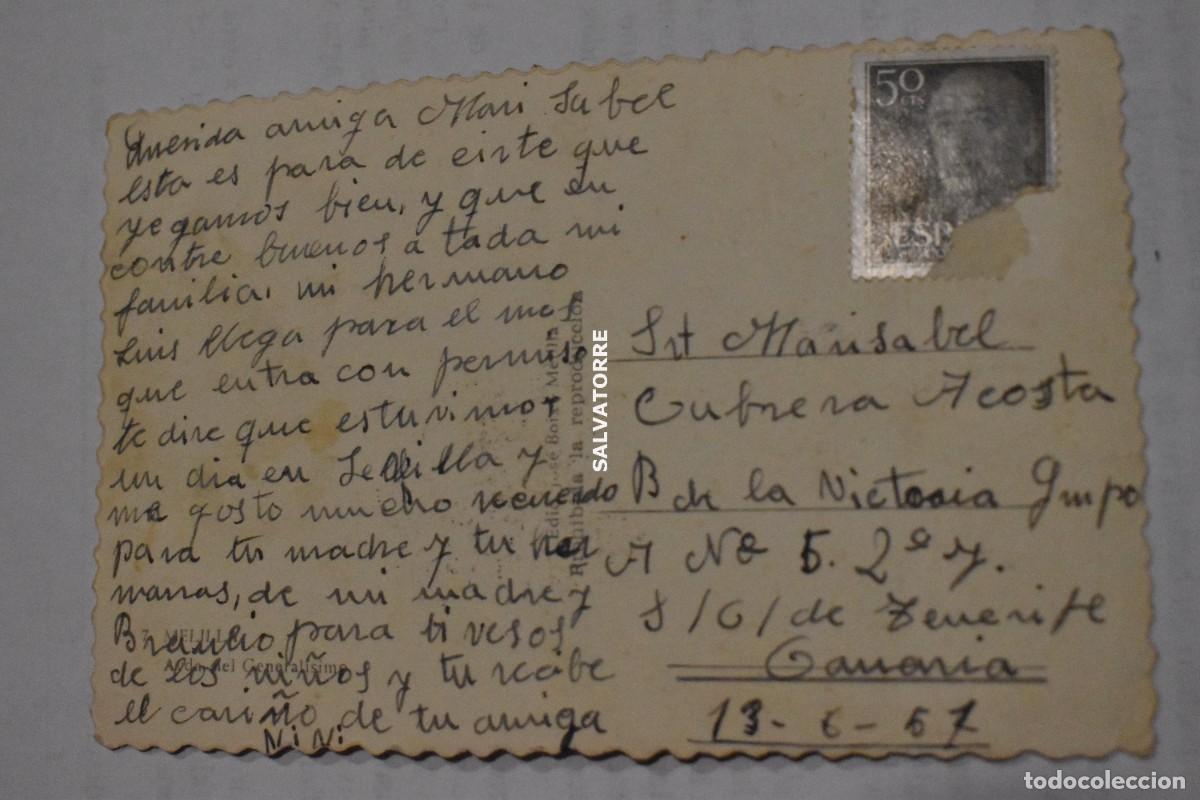 Querida amiga Mari Sabel
esta es para de cirte que
yegamos bien, y que en
contre buenos a tada mi
familia, mi hermano
Luis llega para el mes
que entra con permiso
te dire que estuvimos
un dia en Sevilla y
me gosto mucho recuerdo
para tu madre y tu her
manas, de mi madre y
Braulio para ti vesos
de los niños y tu recibe
el cariño de tu amiga
Ni Ni
7 MELILLA
Avda. del Generalísimo
Prohibida la reproducción
SALVATORRE
50
CTS
ESP
Srt Marisabel
Cubrera Acosta
B de la Victoria Grupo
A Nº 5. 2º y.
S/C/de Tenerife
Canaria
13-6-57
todocoleccion